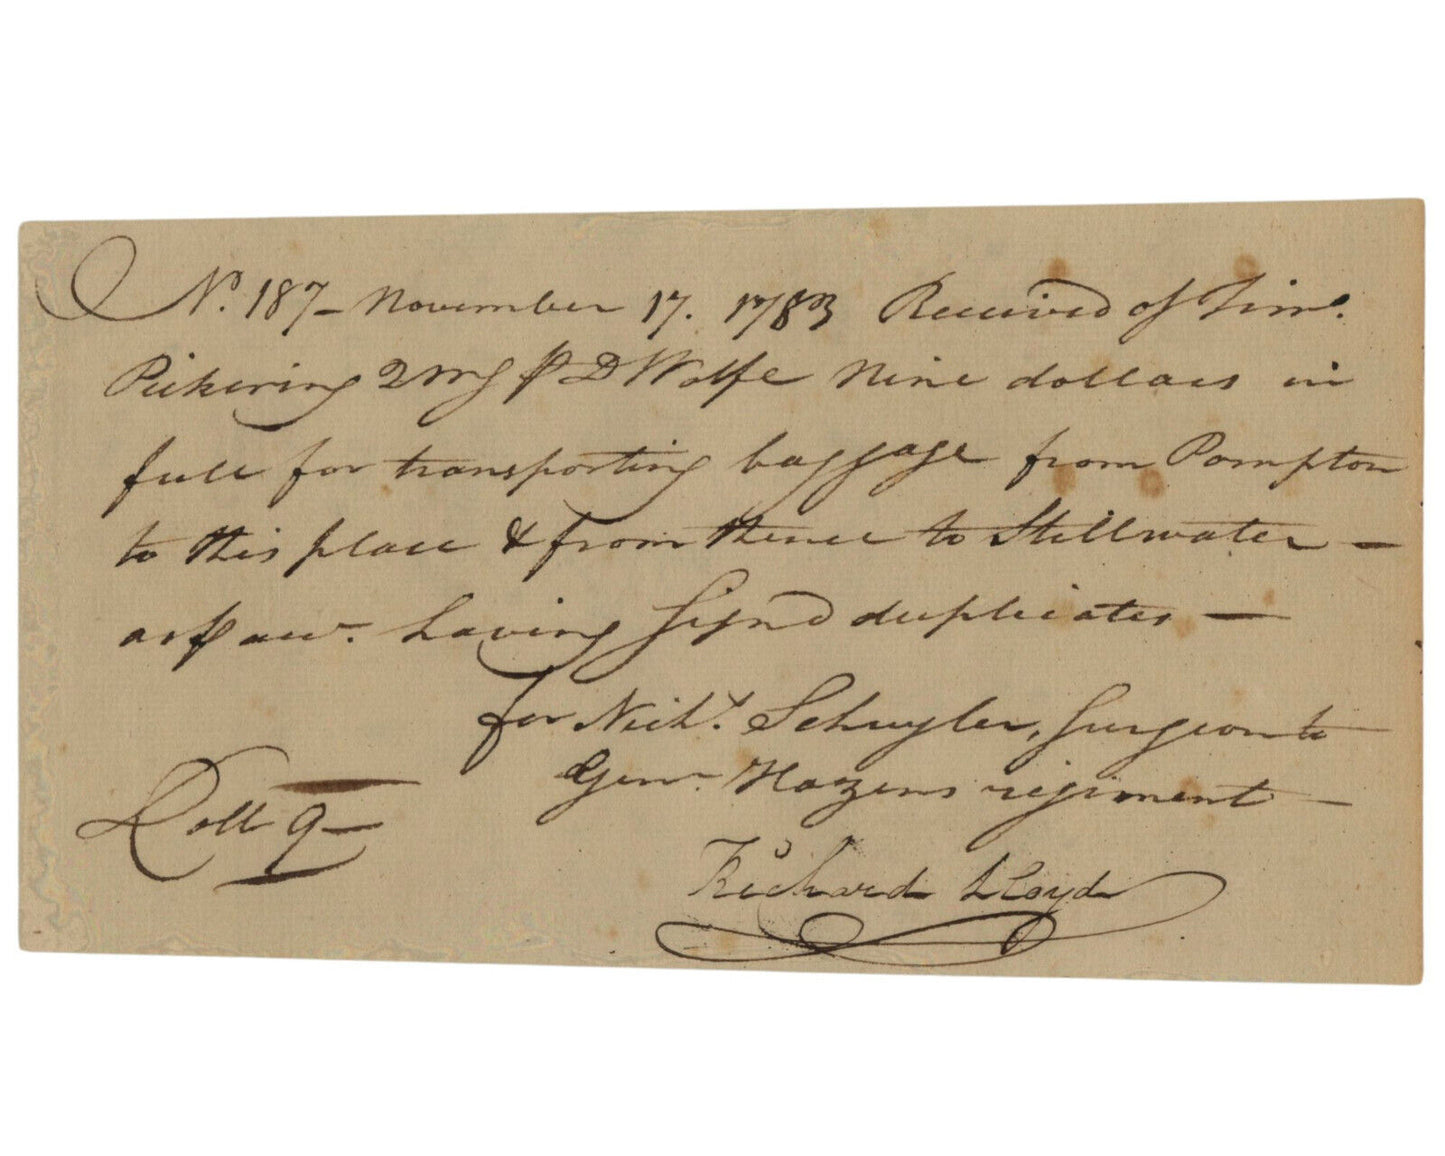 No. 187 - November 17. 1783 Received of Timo.
Pickering QMG ⅌ D Wolfe Nine dollars in
full for transporting baggage from Pompton
to this place & from thence to Stillwater —
as ⅌ acco. having sign'd duplicates —
for Nichs. Schuyler, Surgeon to
Genl. Hazens regiment —
Dolls 9 —
Richard Lloyd